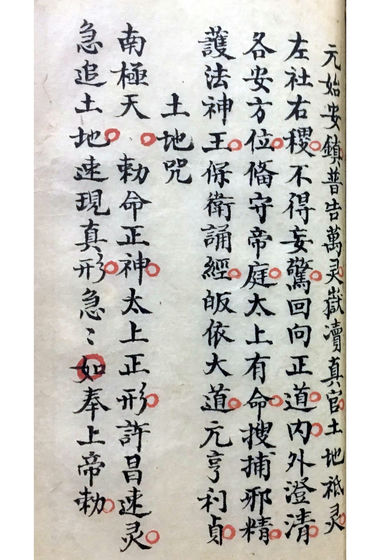 元始安鎮普告萬灵嶽瀆真官土地祇灵
左社右稷不得妄驚回向正道内外澄清
各安方位俻守帝庭太上有命搜捕邪精
護法神王保衛誦經皈依大道元亨利貞
土地咒
南極天 勅命正神太上正形許昌速灵
急追土地速現真形急〻如奉上帝勅